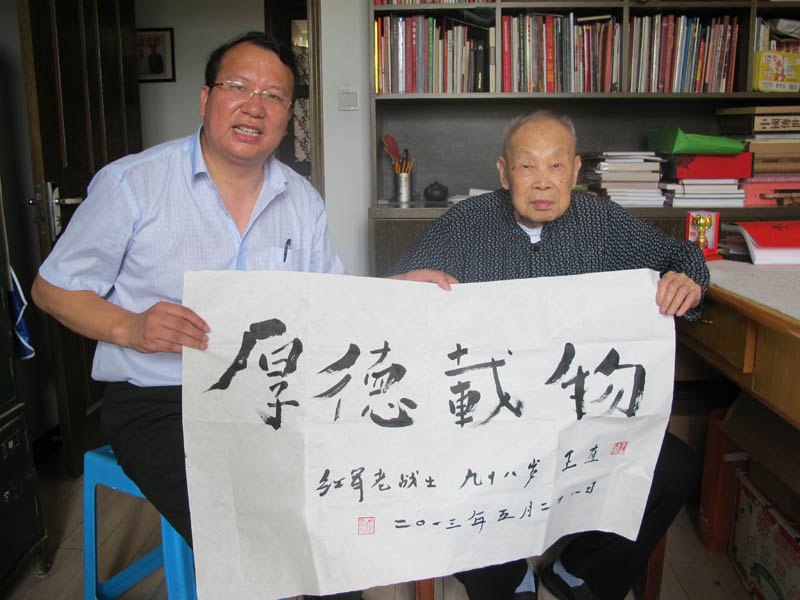 厚德載物
红军老战士 九十八岁 王直
二〇一三年五月二十八日